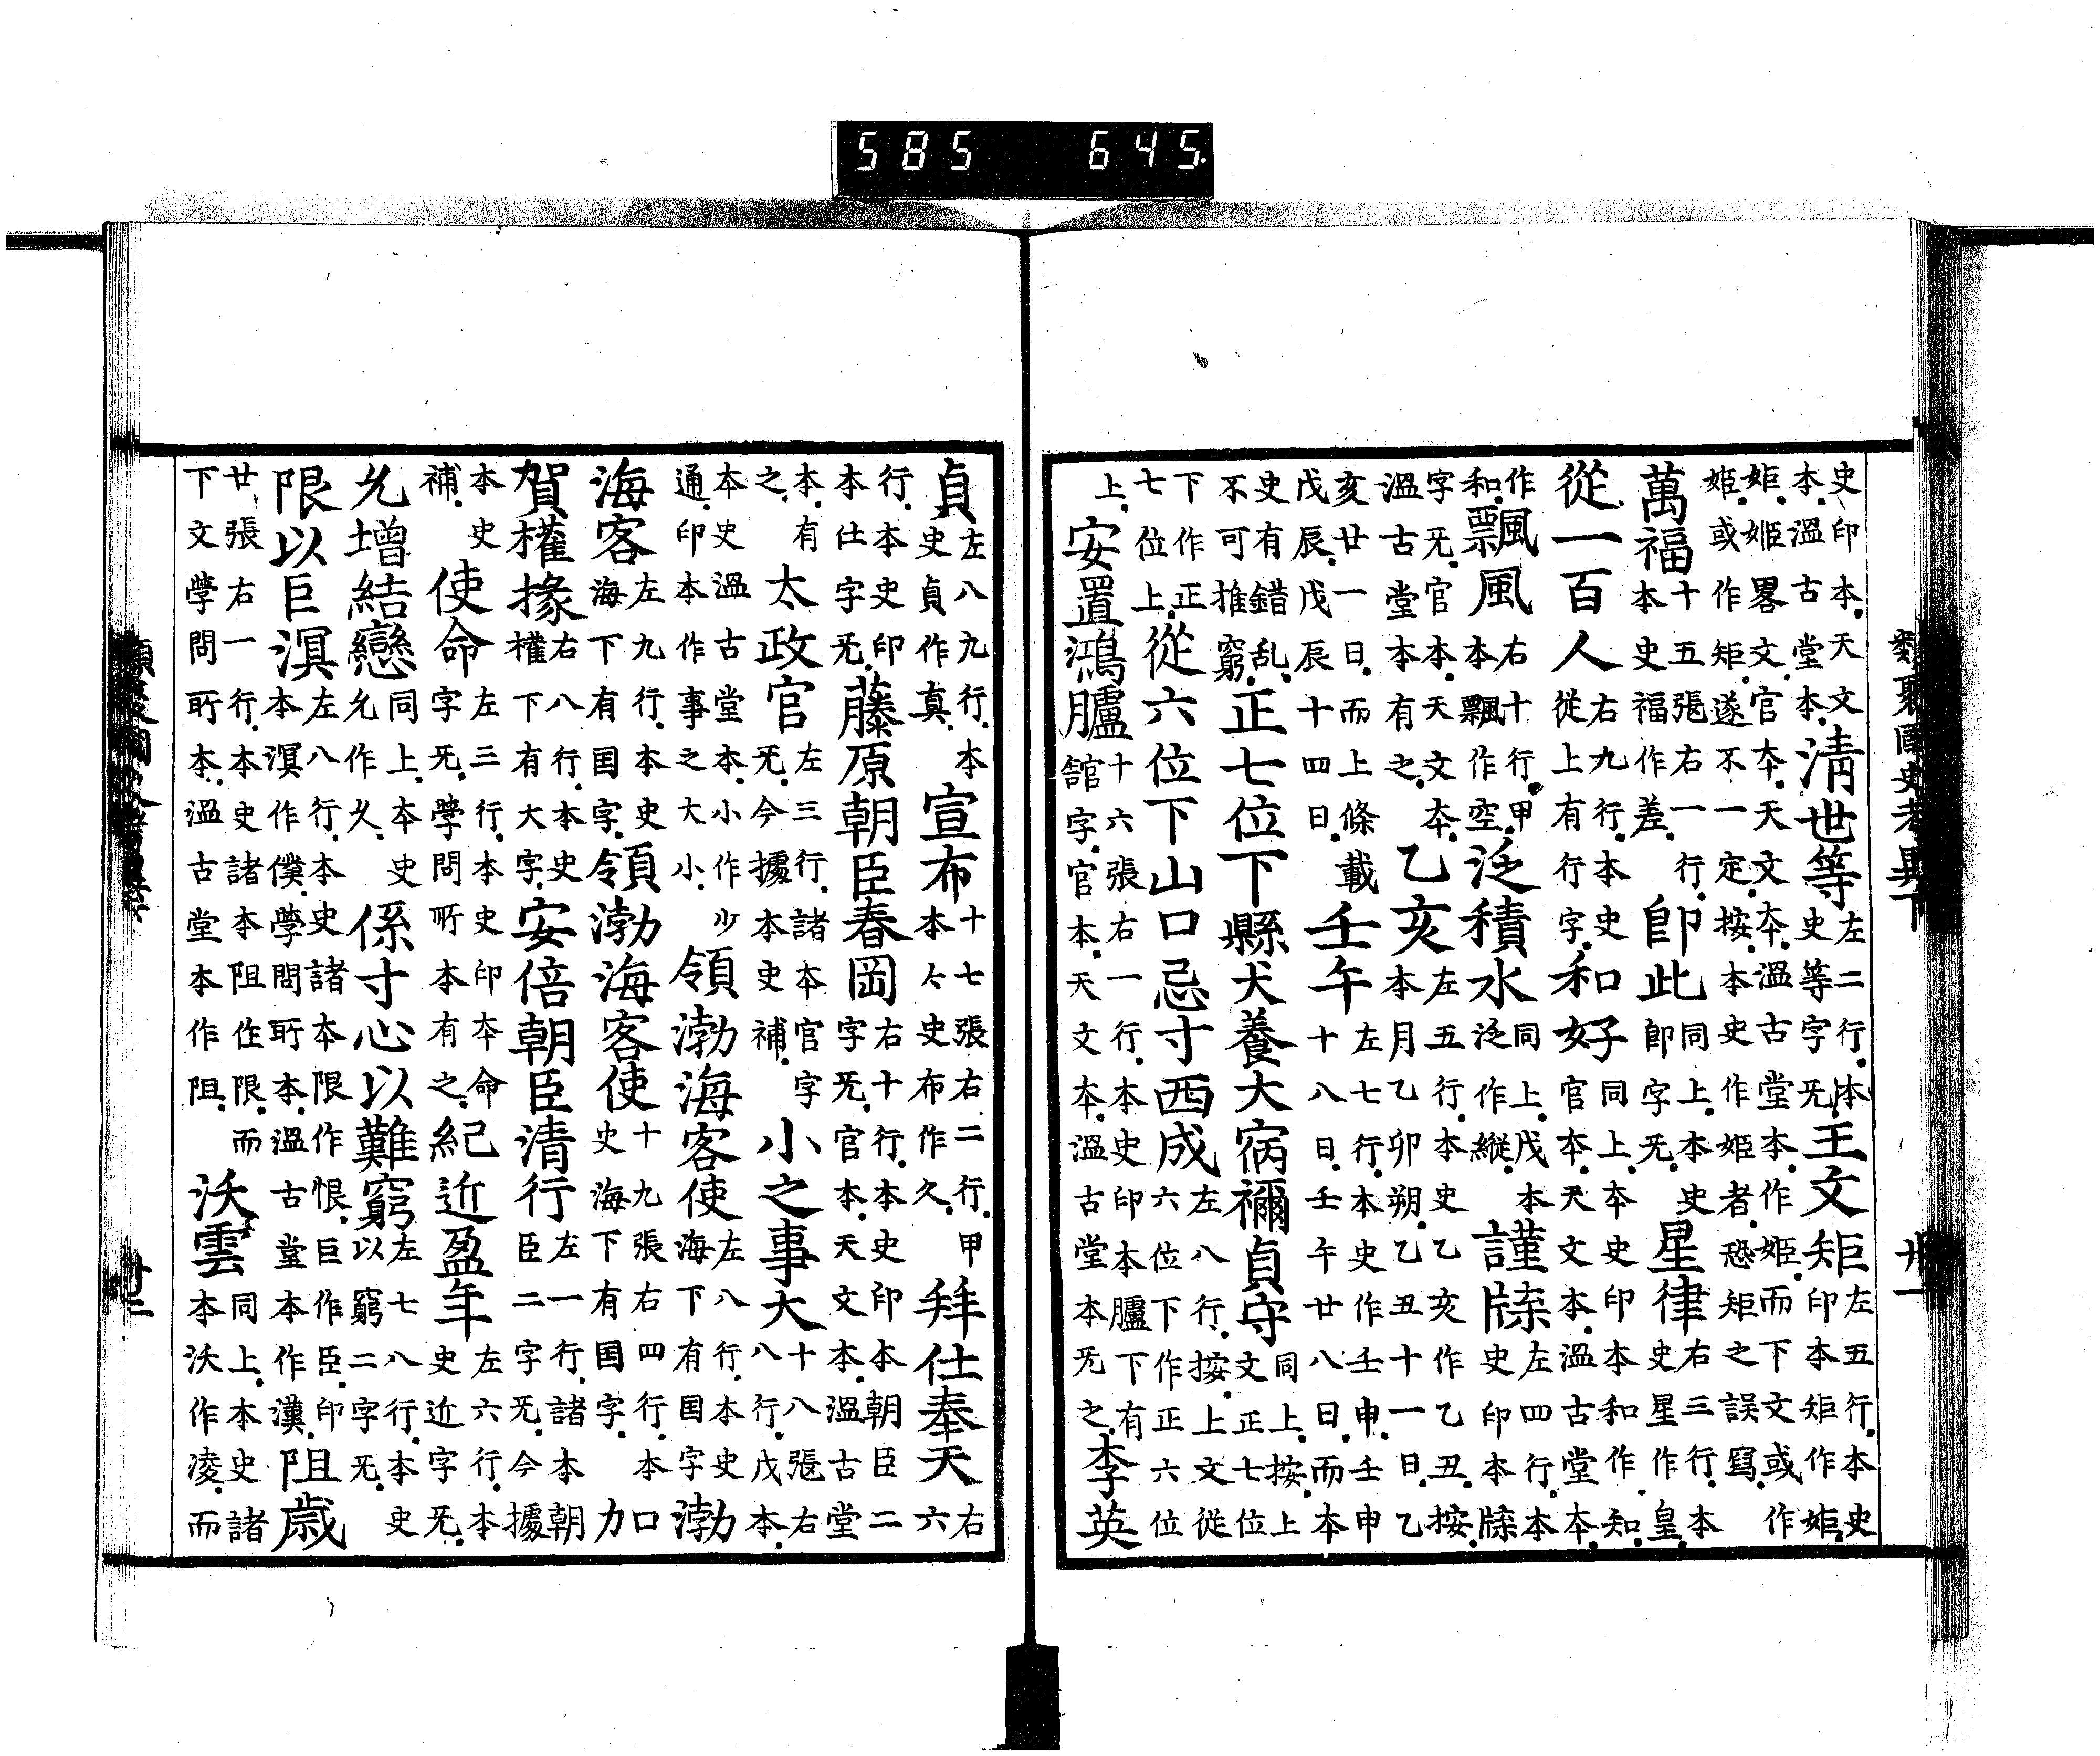 類聚國史考異下　卅一
史印本天文本溫古堂本清世等左二行本史等字旡王文矩左五行本史印本矩作姖
姖姬畧文官本天文本溫古堂本作姬而下文或作姬或作矩遂不一定按本史作姬者恐矩之誤寫
萬福十五張右一行本史福作差卽此同上本史卽字旡星律右三行本史星作皇
從一百人右九行本史從上有行字和好同上本史印本和作知官本天文本溫古堂本
作和飄風右十行甲本飄作空泛積水同上戊本泛作縱謹牒左四行本史印本牒
字旡官本天文本溫古堂本有之乙亥左五行本史乙亥作乙丑按本月乙卯朔乙丑十一日乙
亥廿一日而上條載戊辰戊辰十四日壬午左七行本史作壬申壬申十八日壬午廿八日而本
史有錯乱不可推窮正七位下縣犬養大宿禰貞守同上按上文正七位
下作正七位上從六位下山口忌寸西成左八行按上文從六位下作正六位
上安置鴻臚十六張右一行本史印本臚下有館字官本天文本溫古堂本旡之李英
貞左八九行本史貞作真宣布十七張右二行甲本史布作久拜仕奉天右六
行本史印本仕字旡藤原朝臣春岡右十行本史印本朝臣二字旡官本天文本溫古堂
本有之太政官左三行諸本官字旡今據本史補小之事大十八張右八行戊本
本史溫古堂本小作少通印本作事之大小領渤海客使左八行本史海下有国字渤
海客左九行本史海下有国字領渤海客使十九張右四行本史海下有国字加
賀權掾右八行本史權下有大字安倍朝臣清行左一行諸本朝臣二字旡今據
本史補使命左三行本史印本命字旡學問所本有之紀近盈年左六行本史近字旡
允增結戀同上本史允作久係寸心以難窮左七八行本史以窮二字旡
限以巨溟左八行本史諸本限作恨巨作臣印本溟作僕學問所本溫古堂本作漢阻歳
廿張右一行本史諸本阻作限而下文學問所本溫古堂本作阻沃雲同上本史諸本沃作凌而
585 645